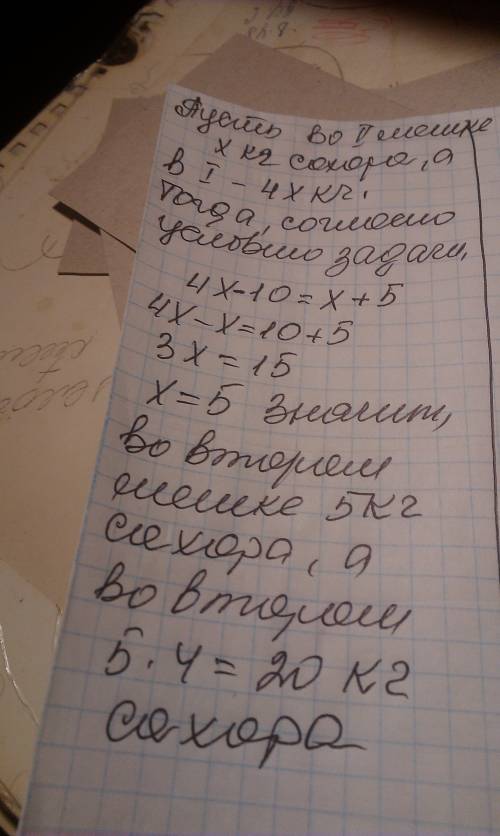 Пусть во II мешке
х кг сахара, а
в I – 4х кг.
Тогда, согласно
условию задачи,
4х-10=х+5
4х-х=10+5
3х=15
х=5 Значит,
во втором
мешке 5кг
сахара, а
во втором
5·4=20 кг
сахара